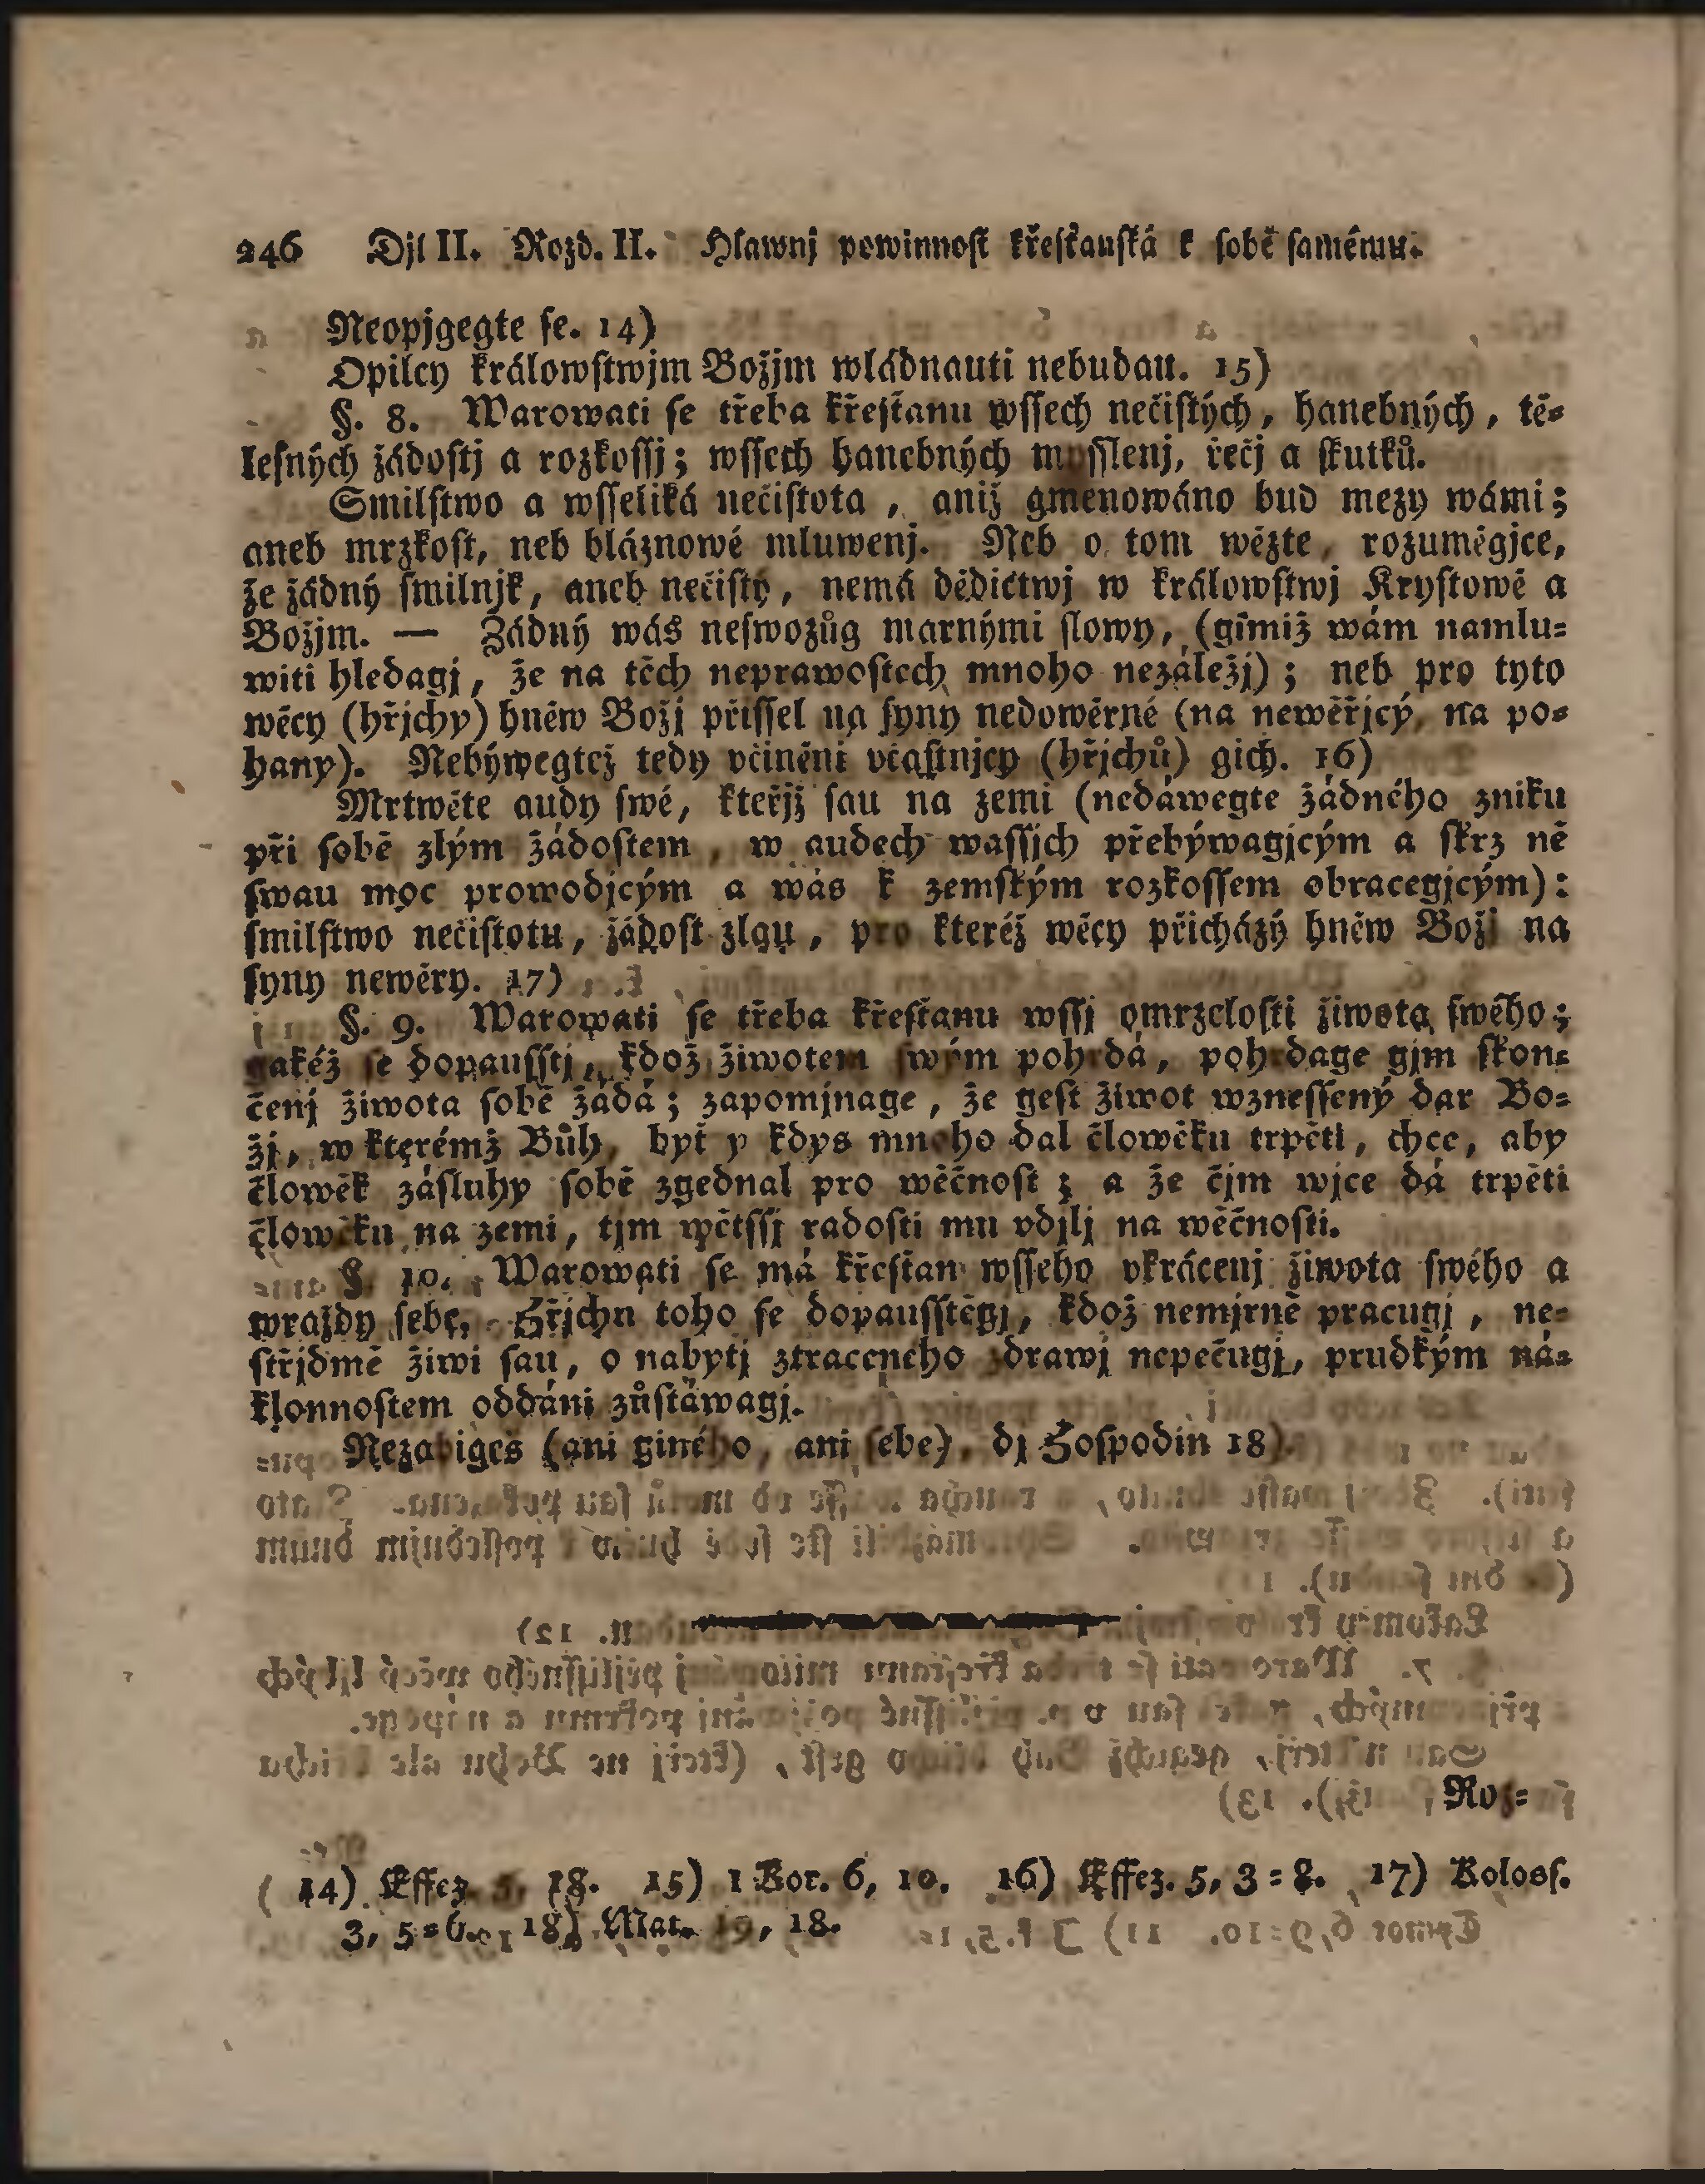 246 Djl II. Rozd. II. Hlawnj powinnoſt křeſťanſká k ſobě ſamému.
Neopjgegte ſe. 14)
Opilcy králowſtwjm Božjm wládnauti nebudau. 15)
§. 8. Warowati ſe třeba křeſťanu wſſech nečiſtých, hanebných, tě=
leſných žádoſtj a rozkoſſj; wſſech hanebných myſſlenj, řečj a ſkutků.
Smilſtwo a wſſeliká nečiſtota, aniž gmenowáno bud mezy wámi;
aneb mrzkoſt, neb bláznowé mluwenj. Neb o tom wězte, rozumégjce,
že žádný ſmilnjk, aneb nečiſtý, nemá dědictwj w králowſtwj Kryſtowě a
Božjm. — Žádný wás neſwozůg marnými ſlowy, (gimiž wám namlu=
witi hledagj, že na těch neprawoſtech mnoho nezáležj); neb pro tyto
wěcy (hřjchy) hněw Božj přiſſel na ſyny nedowěrné (na newěřjcý, na po=
hany). Nebýwegtež tedy včiněni včaſtnjcy (hřjchů) gich. 16)
Mrtwěte audy ſwé, kteřjž ſau na zemi (nedáwegte žádného zniku
při ſobě zlým žádoſtem, w audech waſſjch přebýwagjcým a ſkrz ně
ſwau moc prowodjcým a wás k zemſkým rozkoſſem obracegjcým):
ſmilſtwo nečiſtotu, žádoſt zlau, pro kteréž wěcy přicházý hněw Božj na
ſyny newěry. 17)
§. 9. Warowati ſe třeba křeſťanu wſſj omrzeloſti žiwota ſwého;
gakéž ſe dopauſſtj, kdož žiwotem ſwým pohrdá, pohrdage gjm ſkon=
čenj žiwota ſobě žádá; zapomjnage, že geſt žiwot wzneſſený dar Bo=
žj, w kterémž Bůh, byť y kdys mnoho dal člowěku trpěti, chce, aby
člowěk záſluhy ſobě zgednal pro wěčnoſt; a že čjm wjce dá trpěti
člowěku na zemi, tjm wětſſj radoſti mu vdjlj na wěčnoſti.
§. 10. Warowati ſe má křeſťan wſſeho vkrácenj žiwota ſwého a
wraždy ſebe. Hřjchu toho ſe dopauſſtěgj, kdož nemjrně pracugj, ne=
ſtřjdmě žiwi ſau, o nabytj ztraceného zdrawj nepečugj, prudkým ná=
klonnoſtem oddáni zůſtáwagj.
Nezabigeš (ani giného, ani ſebe), dj Hoſpodin 18).
Roz=
14) Effez. 5, 18. 15) 1 Kor. 6, 10. 16) Effez. 5, 3=8. 17) Koloſſ.
3, 5=6. 18) Mat. 19, 18.